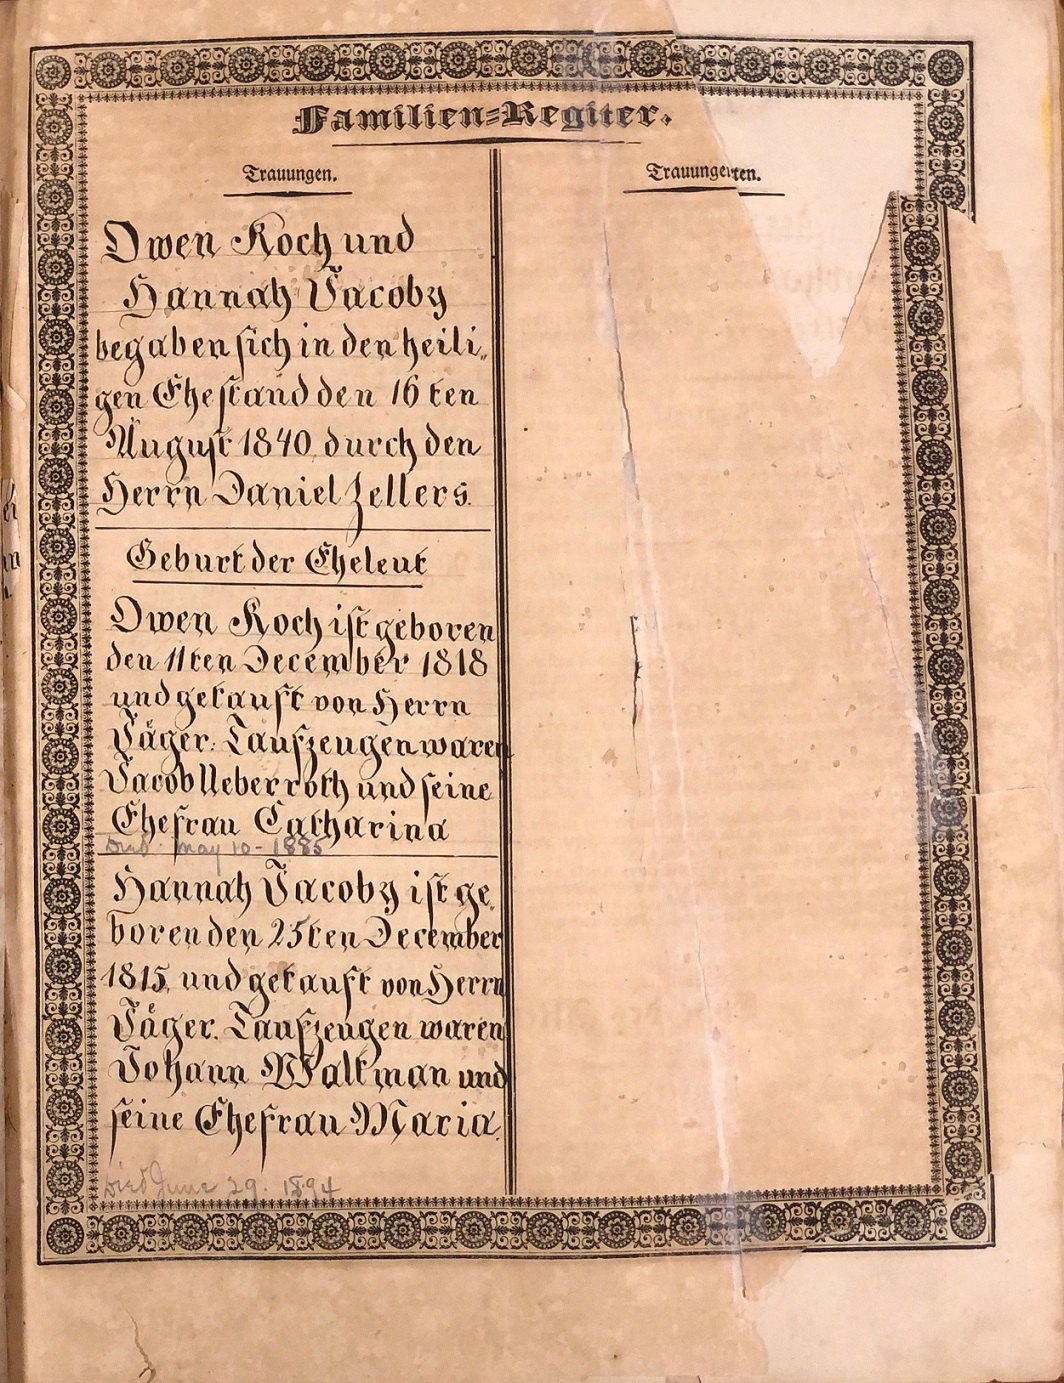 Familien=Regiter.
Trauungen.
Owen Koch und
Hannah Jacoby
begaben sich in den heili„
gen Ehestand den 16ten
August 1840, durch den
Herrn Daniel Zellers.
Geburt der Eheleut
Owen Koch ist geboren
den 11ten December 1818
und getauft von Herrn
Jäger. Taufzeugen waren
Jacob Ueberroth und seine
Ehefrau Catharina
Died. May 10 - 1885
Hannah Jacoby ist ge„
boren den 25ten December
1815, und getauft von Herrn
Jäger. Taufzeugen waren
Johann Waltman und
seine Ehefrau Maria.
Died June 29. 1894